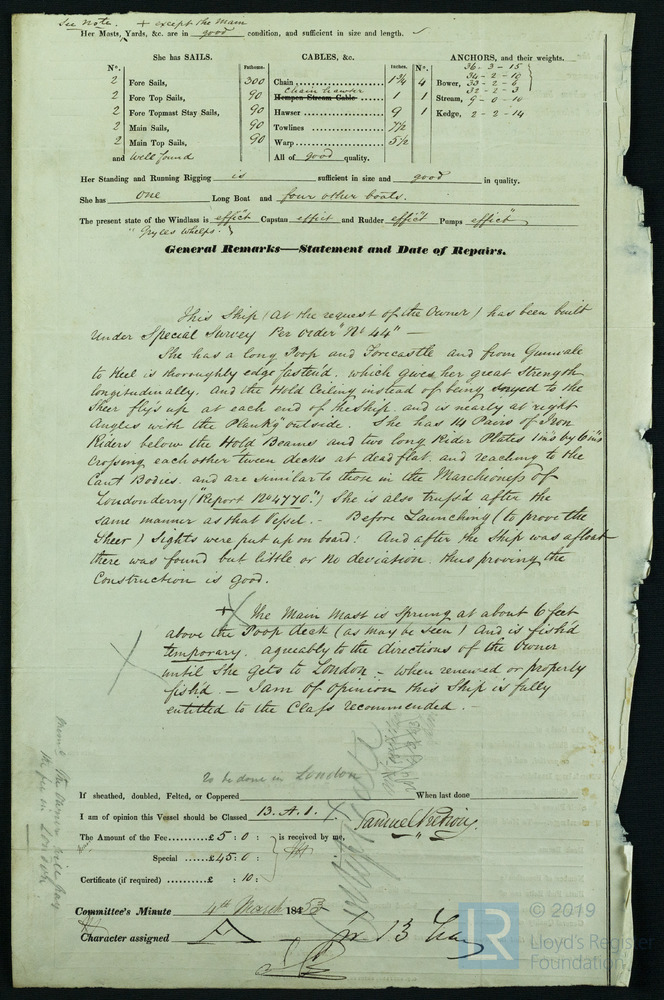 See Note. + except the Main
Her Masts, Yards, &c. are in good condition, and sufficient in size and length.
She has SAILS. CABLES, &c. ANCHORS, and their weights.
N°. Fathoms. Inches. N°.
2 Fore Sails, 300 Chain 1¾ 4 Bower, 36 - 3 - 15
34 - 2 - 10
33 - 2 - 6
32 - 2 - 3
2 Fore Top Sails, 90 Hempen Stream Cable Chain hawser 1 1 Stream, 9 - 0 - 10
2 Fore Topmast Stay Sails, 90 Hawser 9 1 Kedge, 2 - 2 - 14
2 Main Sails, 90 Towlines 7½
2 Main Top Sails, 90 Warp 5½
and Well found All of good quality.
Her Standing and Running Rigging is sufficient in size and good in quality.
She has one Long Boat and four other boats.
The present state of the Windlass is effict Capstan effict and Rudder effict Pumps effict
" Gryles Whelps. "
General Remarks—Statement and Date of Repairs.
This Ship (at the request of the Owner) has been built
under Special Survey Per order "No 44" —
She has a long Poop and Forecastle and from Gunwale
to Keel is thoroughly edge fasten'd, which gives her great Strength
longitudinally. And the Hold Ceiling instead of being Snyed to the
Sheer fly's up at each end of the Ship, and is nearly at right
Angles with the Plank'g outside. She has 14 Pairs of Iron
Riders below the Hold Beams and two long Rider Plates 1 ins by 6 ins
Crossing each other tween decks at dead flat, and reaching to the
Cant Bodies. and are similar to those in the Marchioness of
Londonderry ("Report No 4770".) She is also truss'd after the
same manner as that Vessel. - Before Launching (to prove the
Sheer) Sights were put up on board: And after the Ship was afloat
there was found but little or no deviation. thus proving the
Construction is good.
+ The Main Mast is Sprung at about 6 feet
above the Poop deck (as may be seen) and is fish'd
temporary, agreeably to the directions of the Owner
until She gets to London - when renewed or properly
fish'd. - I am of opinion this Ship is fully
entitled to the Class recommended. -
To be done in London
If sheathed, doubled, Felted, or Coppered When last done
I am of opinion this Vessel should be Classed 13. A. 1.
The Amount of the Fee £ 5 : 0 : is received by me,
Special £ 45 : 0 :
Certificate (if required) £ : 10 :
Committee's Minute 4th March 1853
Character assigned A
Memo. The Owner will pay
the fee in London
LR © 2019
Lloyd's Register
Foundation